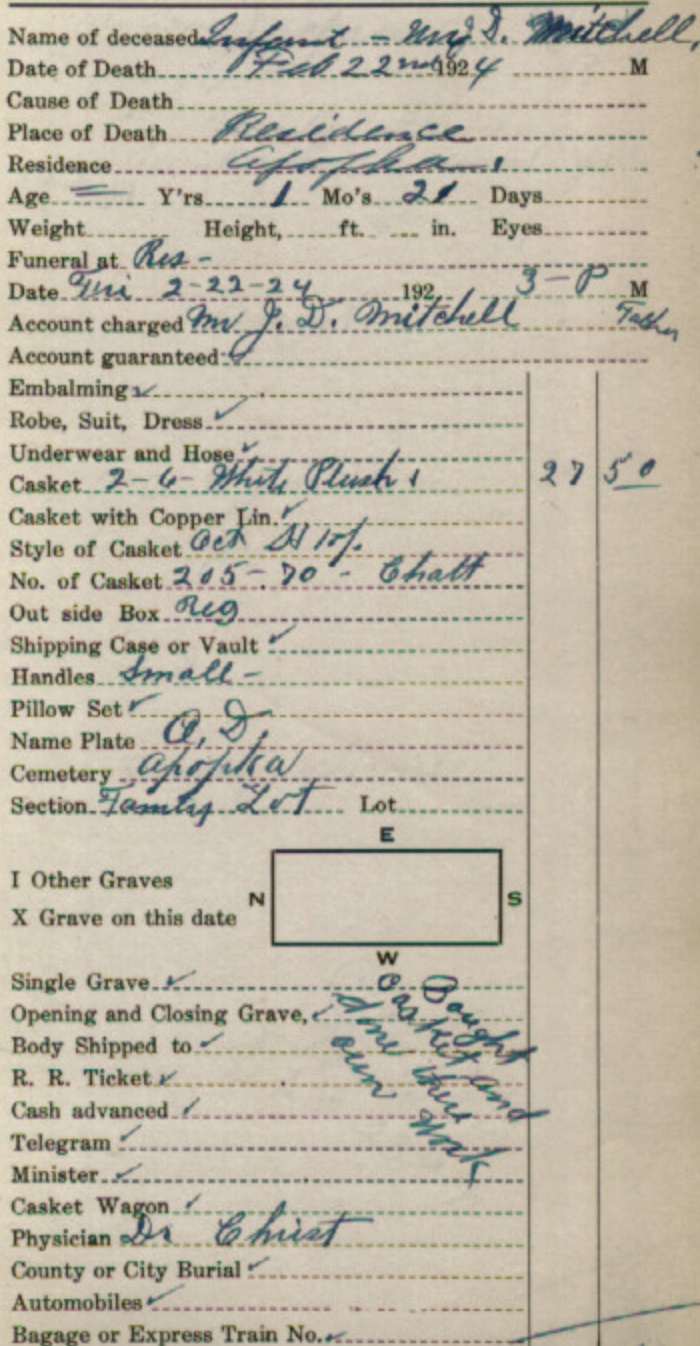 Name of deceased Infant - J. D. Mitchell,
Date of Death Feb 22nd 1924 M
Cause of Death
Place of Death Residence
Residence Apopka
Age = Y'rs 1 Mo's 21 Days
Weight Height, ft. in. Eyes
Funeral at Res -
Date Fri 2-22-24 192 3-P M
Account charged Mr J. D. Mitchell Father
Account guaranteed
Embalming ✓
Robe, Suit, Dress ✓
Underwear and Hose ✓
Casket 2-6- White Plush 27 50
Casket with Copper Lin. ✓
Style of Casket Oct
No. of Casket 205-70 - Chatt
Out side Box Reg
Shipping Case or Vault ✓
Handles Small -
Pillow Set ✓
Name Plate O, D,
Cemetery Apopka
Section Family Lot Lot
E
I Other Graves
N S
X Grave on this date
W
Single Grave ✓
Opening and Closing Grave, ✓
Body Shipped to ✓
R. R. Ticket ✓
Cash advanced ✓
Telegram ✓
Minister ✓
Casket Wagon ✓
Physician Dr Christ
County or City Burial ✓
Automobiles ✓
Bagage or Express Train No. ✓
Bought
Casket and
done there
own work